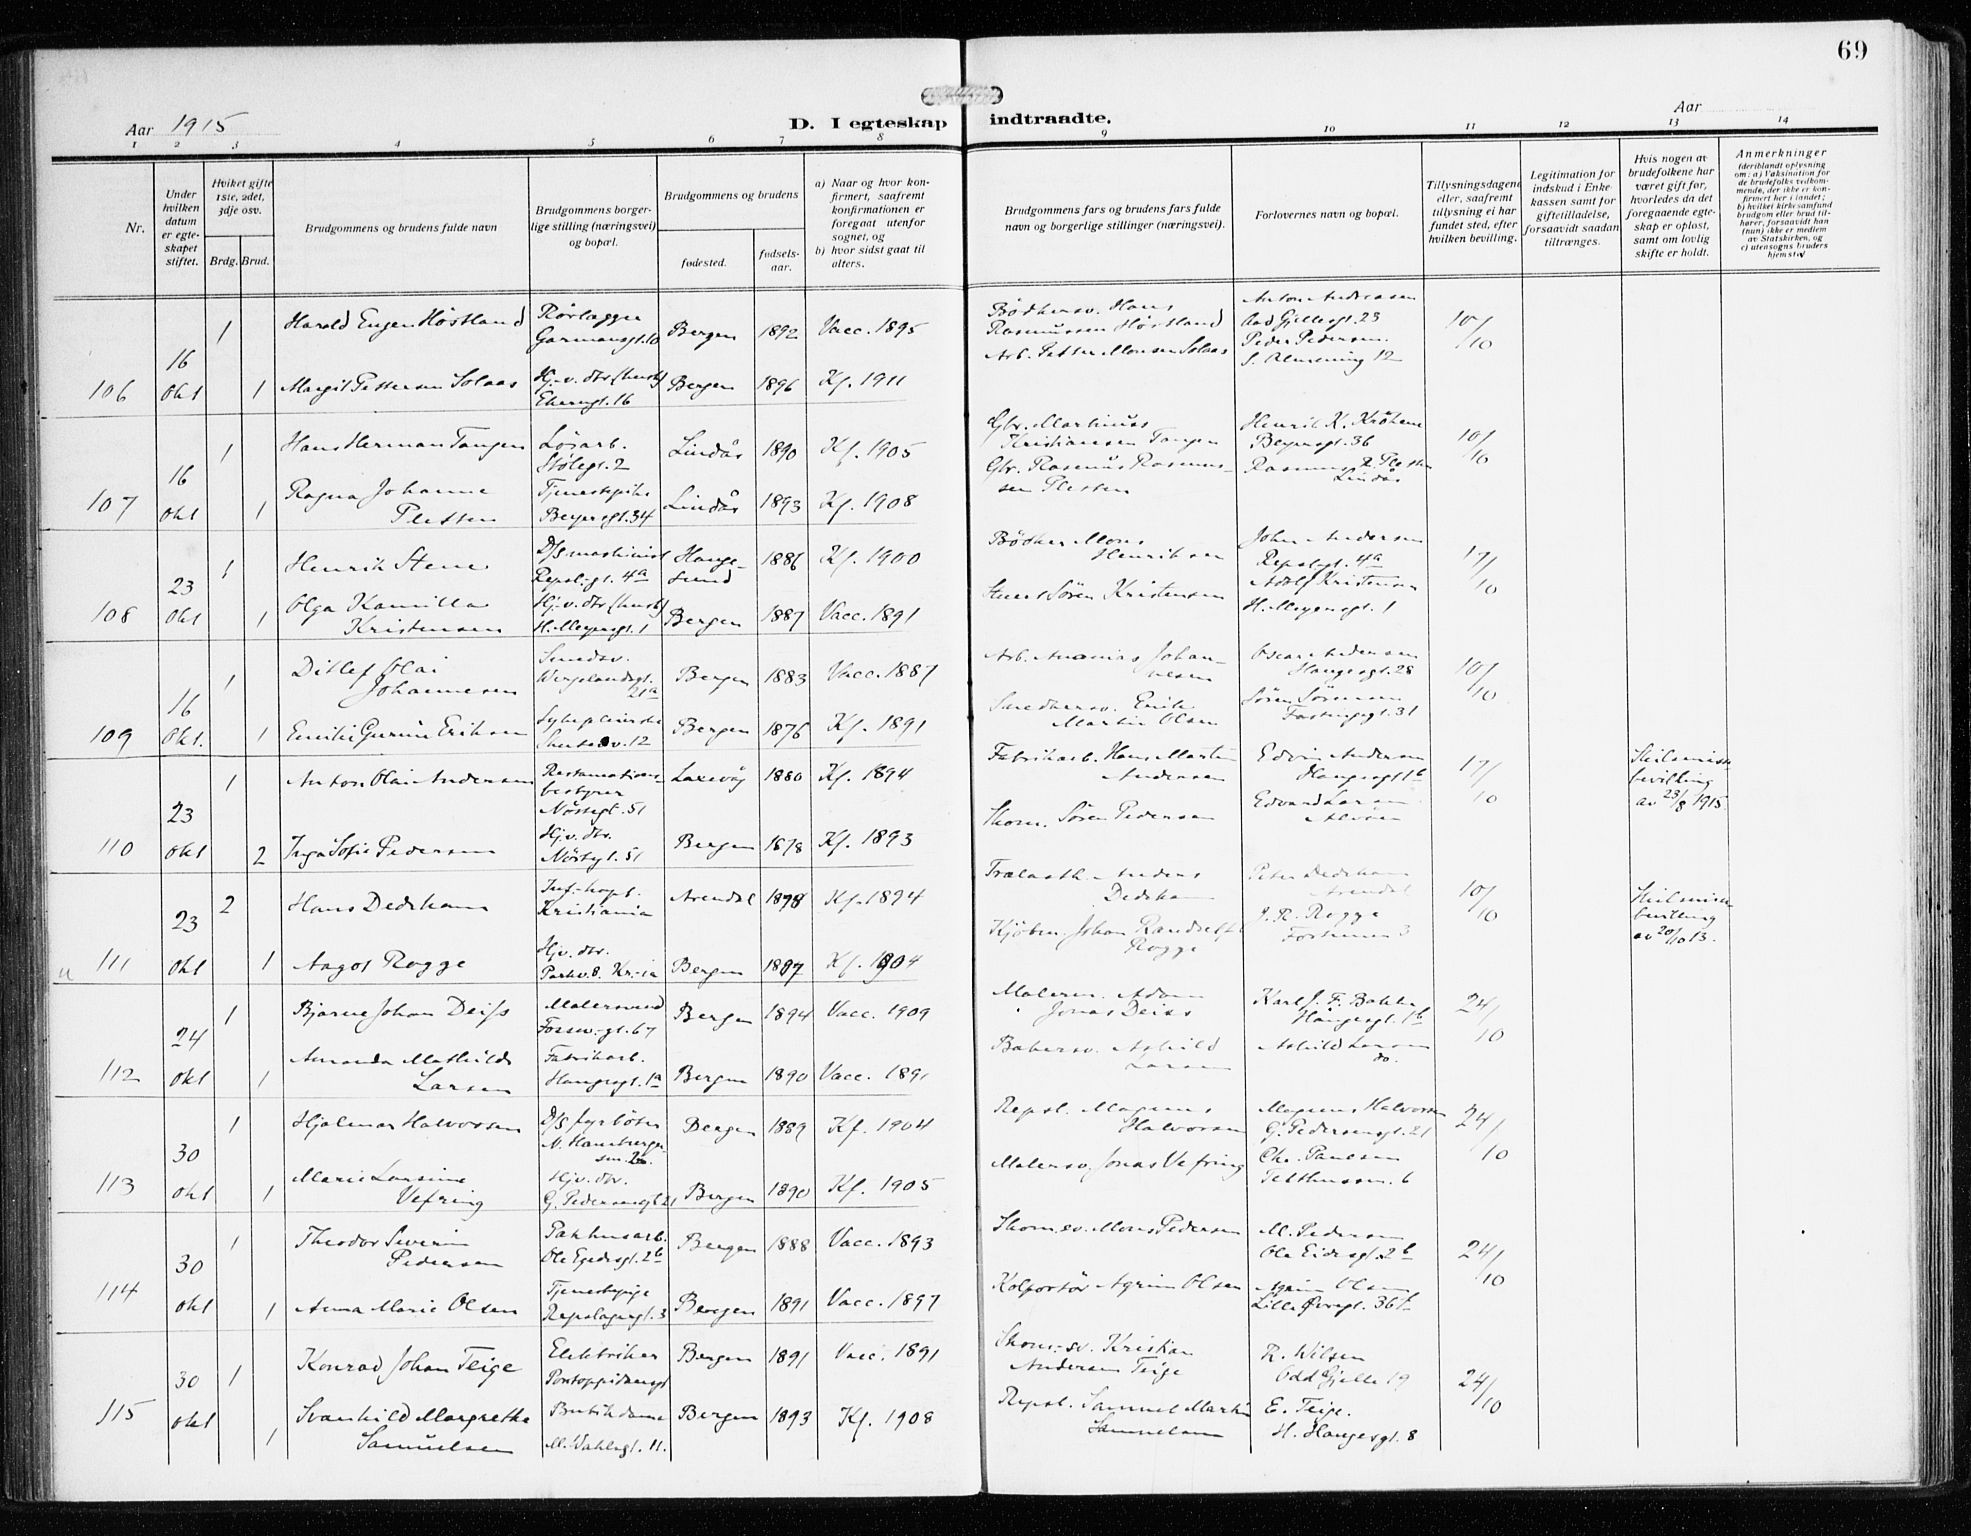 69
Aar 1915
D. I egteskap indtraadte.
Aar
1 2 3 4 5 6 7 8 9 10 11 12 13 14
Nr.
Under hvilken datum er egteskapet stiftet.
Hviket gifte 1ste, 2det, 3dje osv.
Brdg. Brud.
Brudgommens og brudens fulde navn
Brudgommens borgerlige stilling (næringsvei) og bopæl.
Brudgommens og brudens
fødested.
fødselsaar.
a) Naar og hvor konfirmert, saafremt konfirmationen er foregaat utenfor sognet, og
b) hvor sidst gaat til alters.
Brudgommens fars og brudens fars fulde navn og borgerlige stillinger (næringsvei).
Forlovernes navn og bopæl.
Tillysningsdagene eller, saafremt tillysning ei har fundet sted, efter hvilken bevilling.
Legitimation for indskud i Enkekassen samt for giftetilladelse, forsaavidt saadan tiltrænges.
Hvis nogen av brudefolkene har været gift før, hvorledes da det foregaaende egteskap er opløst, samt om lovlig skifte er holdt.
Anmerkninger (deriblandt oplysning om: a) Vaksination for de brudefolks vedkommende, der ikke er konfirmert her i landet; b) hvilket kirkesamfund brudgom eller brud tilhører, forsaavidt han (hun) ikke er medlem av Statskirken, og c) utensogns bruders hjemsted
106 16 Okt
1 Harald Eugen Høstland Rørlægger Garmansgt. 10 Bergen 1892 Vacc. 1895
Bødkersv. Hans Rasmussen Høstland Anton Andreasen Odd Gjellesgt. 23 10/10
1 Margit Pettersen Solaas Hj. v. dtr (husb) Bergen 1896 Kf. 1911
Arb. Petter Monsen Solaas Peder Pedersen S. Almenning 12
107 16 Okt
1 Hans Herman Tangen Løsarb. Stølegt. 2 Lindås 1890 Kf. 1905
Gbr. Martinus Kristiansen Tangen Henrik K. Beyersgt. 36 10/10
1 Ragna Johanne Pletten Tjenestepike Beyersgt. 34 Lindås 1893 Kf. 1908
Gbr. Rasmus Rasmussen Pletten Rasmus R. Pletten Lindås
108 23 Okt
1 Henrik Stene D/S maskinist Repslgt. 4a Haugesund 1886 Kf. 1900
Bødker Mons Henriksen John Andersen Repslgt. 4a 17/10
1 Olga Kamilla Kristensen Hj. v. dtr (husb) H. Meyersgt. 1 Bergen 1887 Vacc. 1891
Søren Kristensen Adolf Kristensen H. Meyersgt. 1
109 16 Okt.
1 Ditlef Olai Johannesen Smedsv. Wergelandsgt. 21a Bergen 1883 Vacc. 1887
Arb. Ananias Johannesen Oscar Andersen Haugesgt. 28 10/10
1 Emilie Gurine Eriksen Sykepleierske 12 Bergen 1876 Kf. 1891
Smedkersv. Erik Martin Olsen Søren Sørensen 31
110 23 Okt
1 Anton Olai Andersen Restaurationsbestyrer Nøstegt. 51 Laxevåg 1880 Kf. 1894
Fabrikarb. Hans Martin Andersen Edvin Andersen Haugesgt 1b 17/10
Skilsmissebevilling av 23/8 1915.
2 Inga Sofie Pedersen Hj. v. dtr. Nøstegt. 51 Bergen 1878 Kf. 1893
Skom. Søren Pedersen Edvard Larsen Alvøen
111 23 Okt
2 Hans Dedekam Inf.-kapt. Kristiania Arendal 1878 Kf. 1894
Trælasth. Anders Dedekam Peter Dedekam Arendal 10/10
Skilsmissebevilling av 20/10 13.
1 Aagot Rogge Hj v. dtr. Parkv. 8. Kr.ia Bergen 1887 Kf. 1904
Kjøbm. Johan Randulf Rogge J. R. Rogge Fortunen 3
112 24 Okt
1 Bjarne Johan Deiss Malersvend Forsv.-gt. 67 Bergen 1894 Vacc. 1909
Malerm. Adam Jonas Deiss Karl J. F. Bakke Haugesgt. 1b 24/10
1 Amanda Mathilde Larsen Fabrikarb. Haugesgt. 1a Bergen 1890 Vacc. 1891
Bakersv. Askild Larsen Askild Larsen do.
113 30 Okt
1 Hjalmar Halvorsen D/S fyrbøter N. Hambergersm. 26. Bergen 1889 Kf. 1904
Repsl. Magnus Halvorsen Magnus Halvorsen G. Pedersensgt. 21 24/10
1 Marie Larsine Vefring Hj v. dtr. G. Pedersensgt 21 Bergen 1890 Kf. 1905
Malersv. Jonas Vefring Chr. Paulsen Telthussm. 6
114 30 Okt
1 Theodor Severin Pedersen Pakhusarb. Ole Egedesgt. 2b Bergen 1888 Vacc. 1893
Skom.sv. Mons Pedersen M. Pedersen Ole Eidesgt. 2b 24/10
1 Anna Marie Olsen Tjenestepige Repslagergt. 3 Bergen 1891 Vacc. 1897
Kolportør Agrim Olsen Agrim Olsen Lille Øvregt. 36
115 30 Okt
1 Konrad Johan Teige Elektriker Pontoppidansgt Bergen 1891 Vacc. 1891
Skom.-sv. Kristian Andersen Teige R. Nilsen Odd Gjelle 19 24/10
1 Svanhild Margrethe Samuelsen Butikdame M. Wahlsgt. 11. Bergen 1893 Kf. 1908
Repsl. Samuel Martin Samuelsen E. Teige. H. Haugesgt. 8